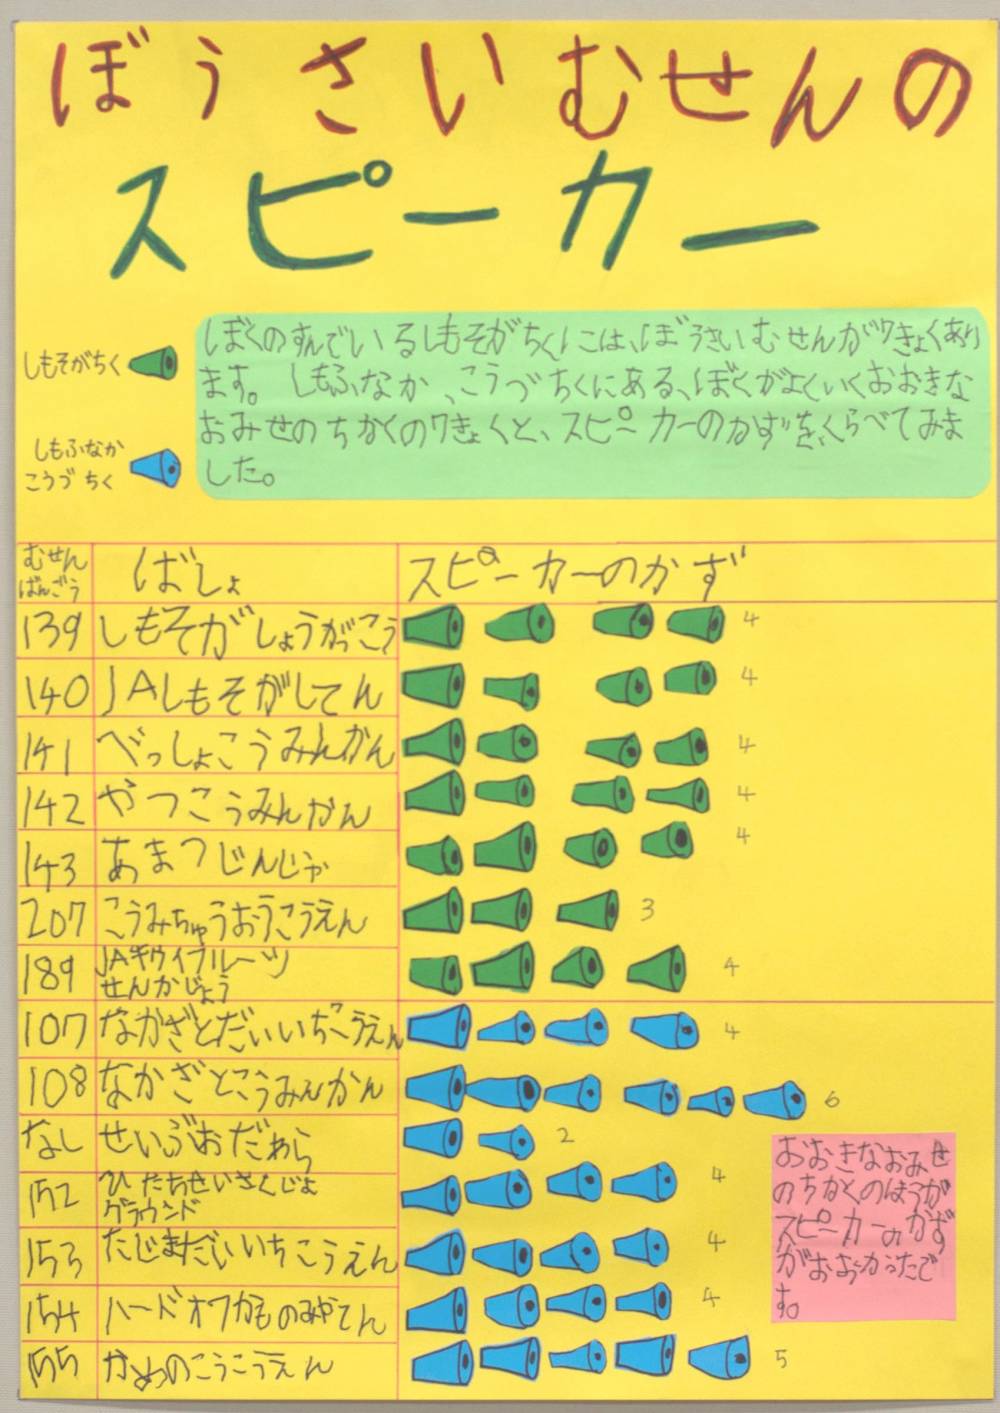 ぼうさいむせんの
スピーカー
しもそがちく
しもふなか
こうづちく
ぼくのすんでいるしもそがちくには、ぼうさいむせんが7きょくあり
ます。しもふなか、こうづちくにある、ぼくがよくいくおおきな
おみせのちかくの7きょくと、スピーカーのかずをくらべてみま
した。
むせん
ばんごう
ばしょ
スピーカーのかず
139 しもそがしょうがっこう 4
140 JAしもそがしてん 4
141 べっしょこうみんかん 4
142 やつこうみんかん 4
143 あまつじんじゃ 4
207 こうみちゅうおうこうえん 3
189 JAキウイフルーツ
せんかじょう 4
107 なかざとだいいちこうえん 4
108 なかざとこうみんかん 6
なし せいぶおだわら 2
152 ひたちせいさくじょ
グラウンド 4
153 たじまだいいちこうえん 4
154 ハードオフかものみやてん 4
155 かめのこうこうえん 5
おおきなおみせ
のちかくのほうが
スピーカーのかず
がおおかったで
す。